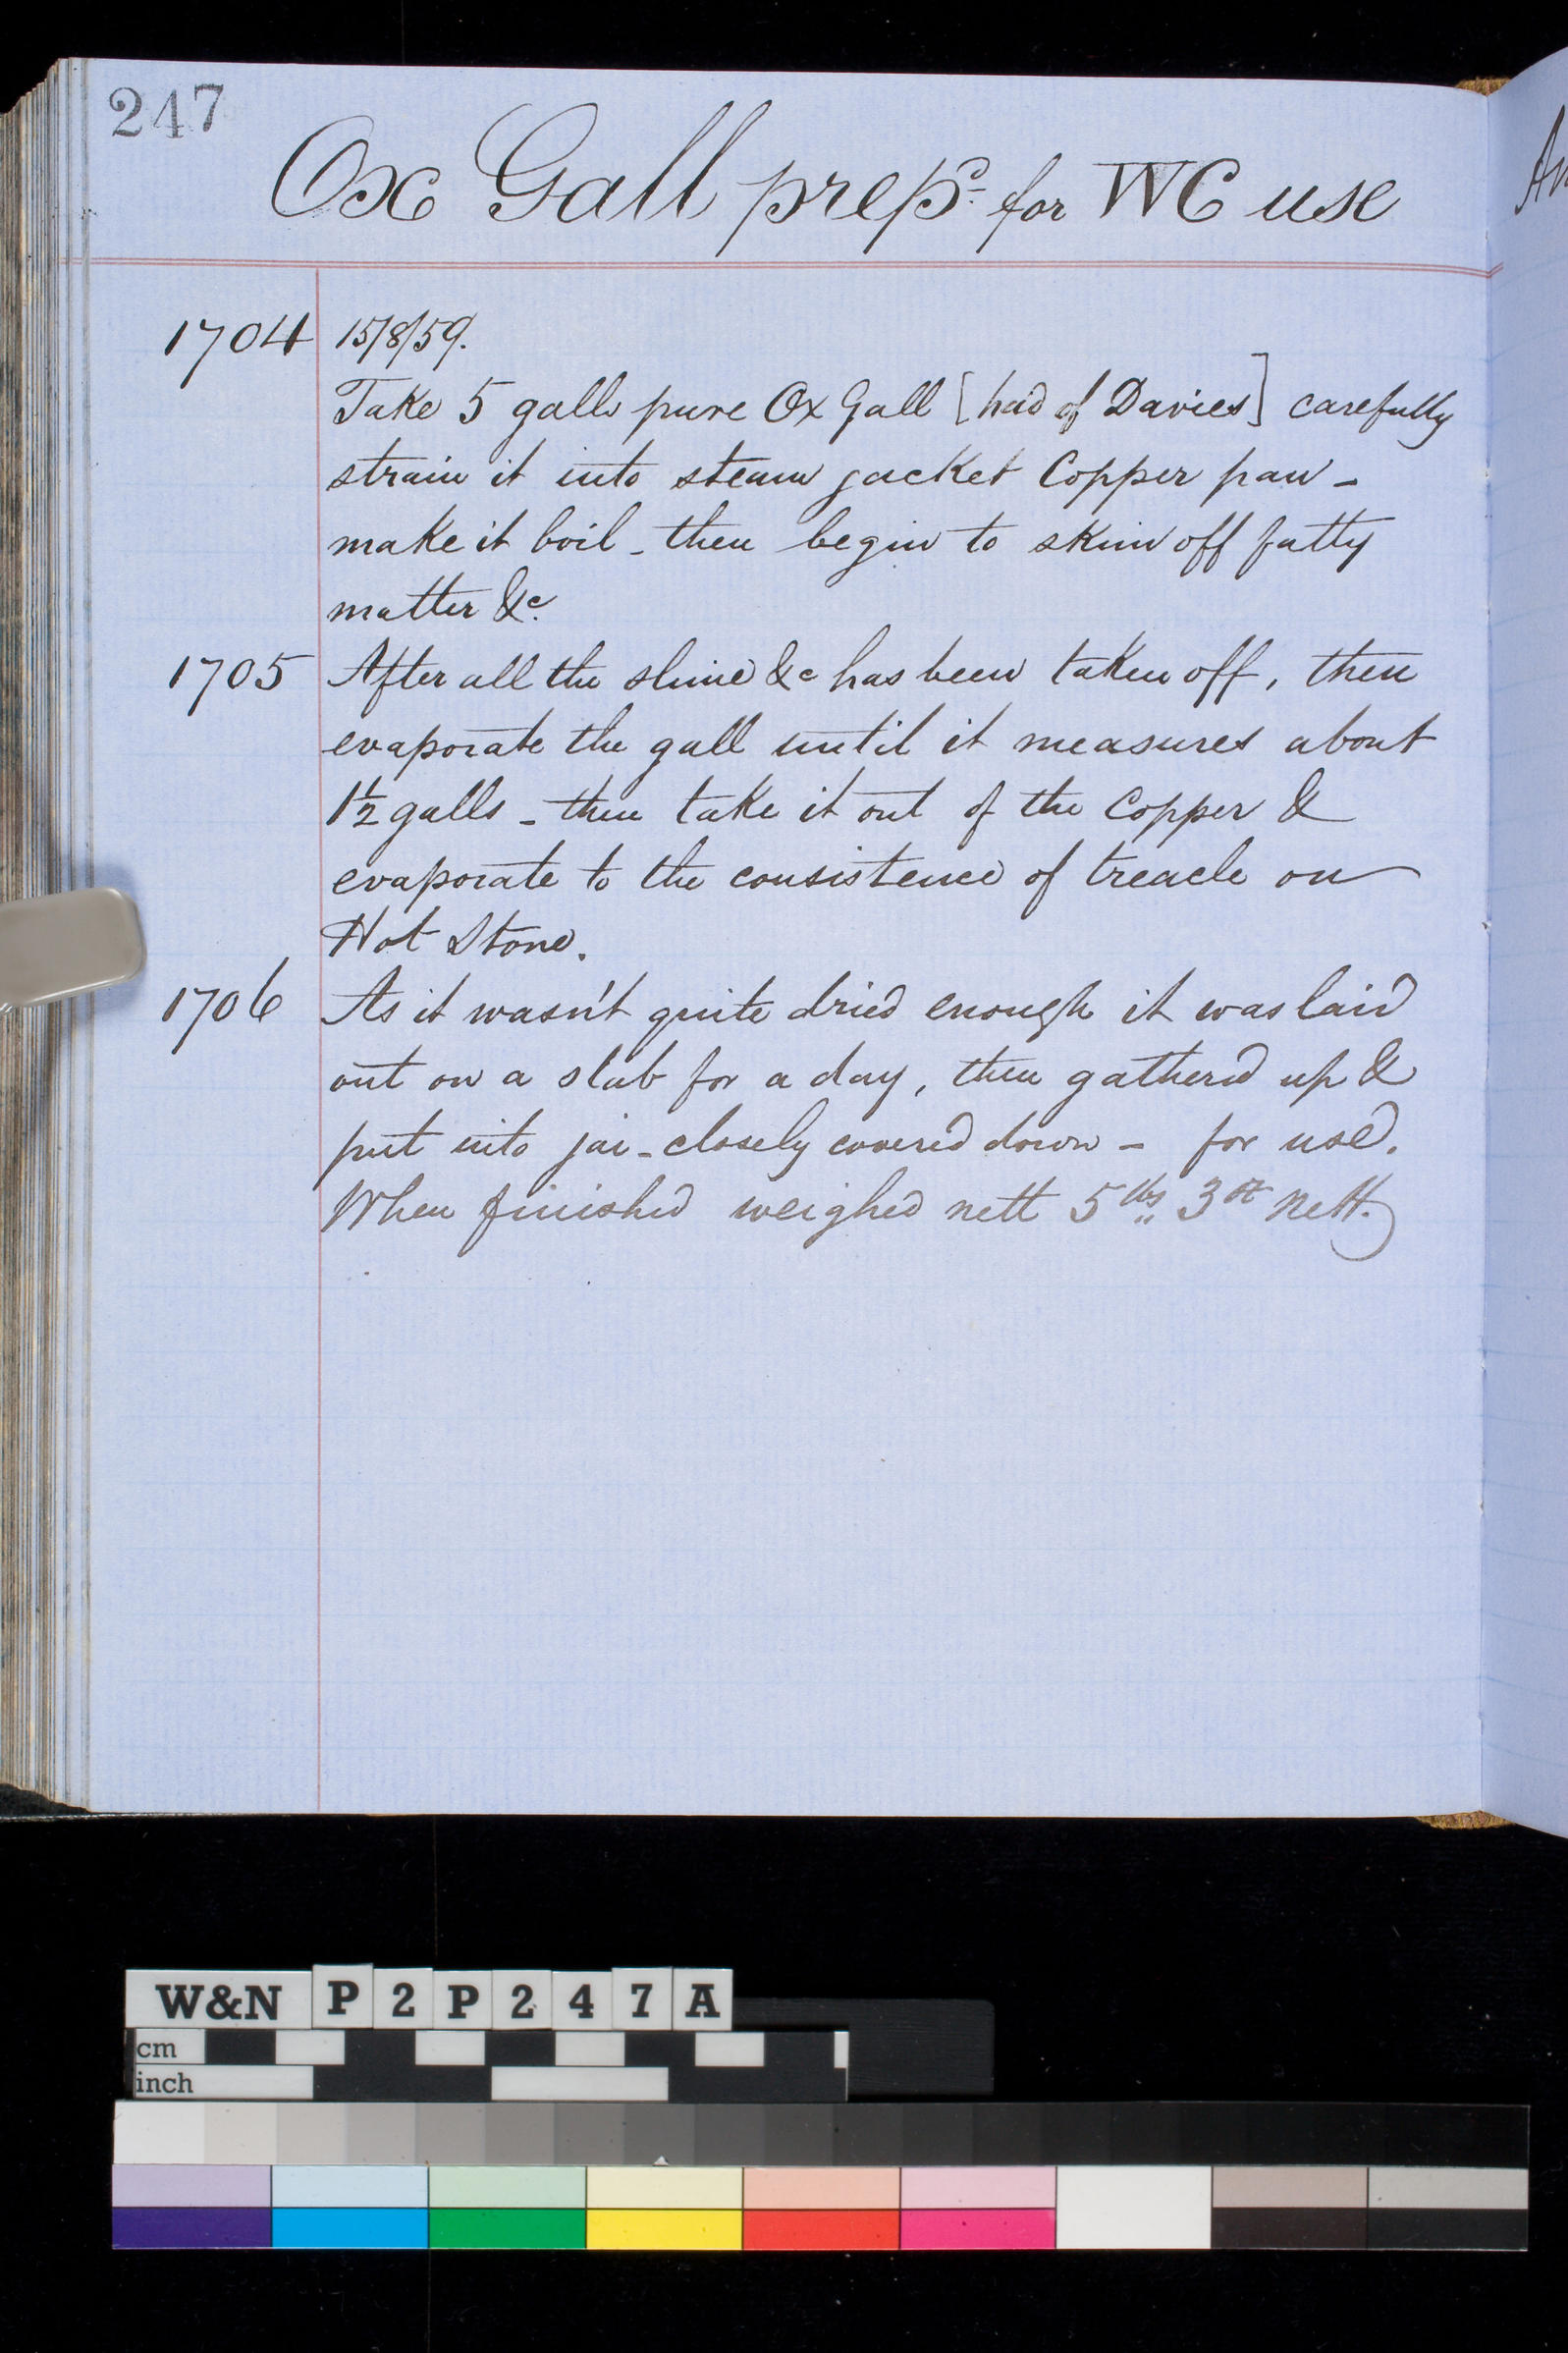 247
Ox Gall prepn for WC use
1704 15/8/59.
Take 5 galls pure Ox Gall [had of Davies] carefully
strain it into steam jacket Copper pan -
make it boil - then begin to skim off fatty
matter &c.
1705 After all the slime &c has been taken off, then
evaporate the gall until it measures about
1½ galls - then take it out of the Copper &
evaporate to the consistence of treacle on
Hot Stone.
1706 As it wasn't quite dried enough it was laid
out on a slab for a day, then gathered up &
put into jar - closely covered down - for use.
When finished weighed nett 5 lbs 3 oz nett.
W&N P2P247A
cm
inch